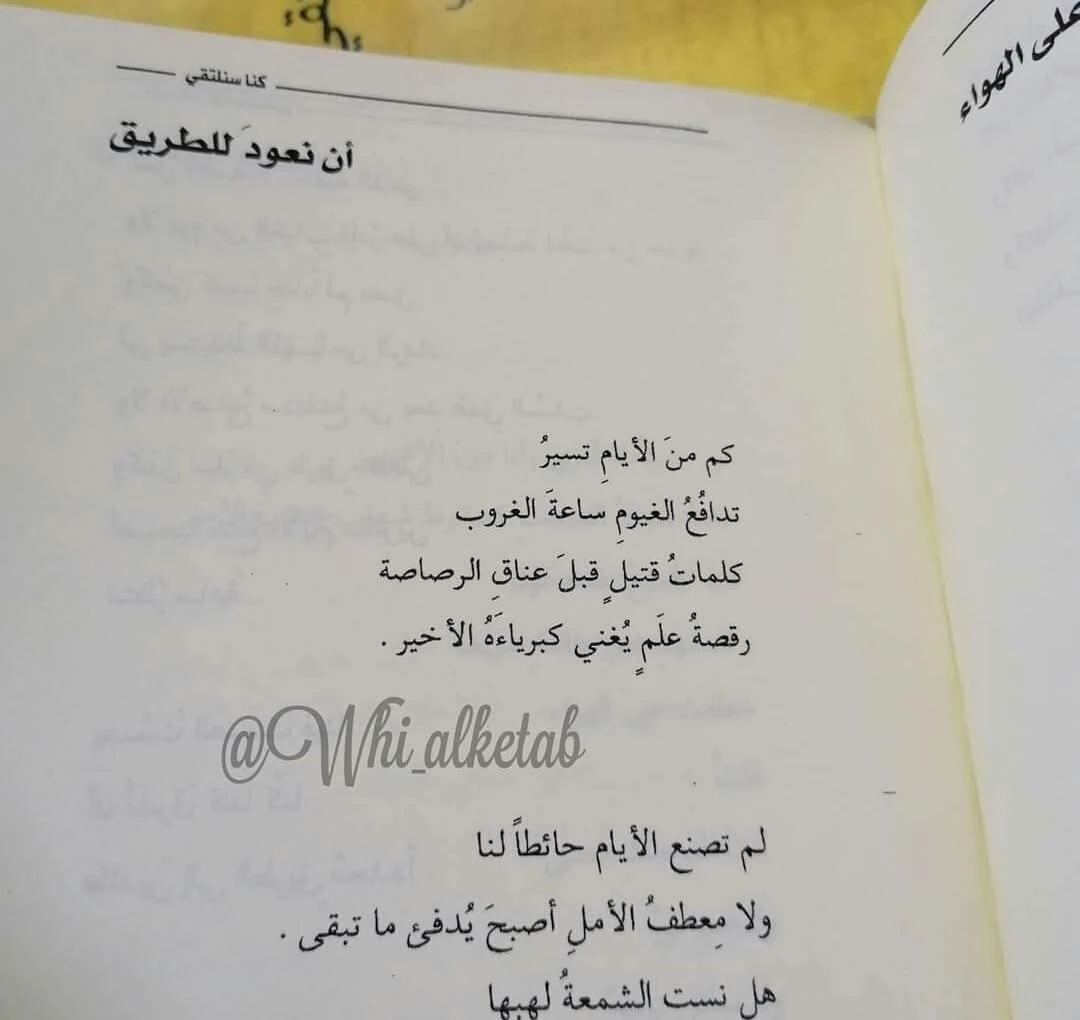 على الهواء
كنا سنلتقي
أن نعودَ للطريق
كم منَ الأيامِ تسيرُ
تدافُعُ الغيومِ ساعةَ الغروب
كلماتُ قتيلٍ قبلَ عناقِ الرصاصة
رقصةُ علَمٍ يُغني كبرياءَهُ الأخير .
@Whi_alketab
لم تصنع الأيام حائطاً لنا
ولا مِعطفُ الأملِ أصبحَ يُدفئ ما تبقى .
هل نست الشمعةُ لهبها